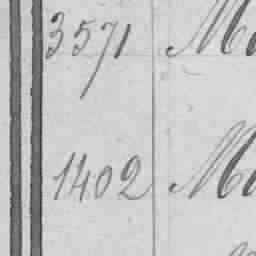 3571 M
1402 M